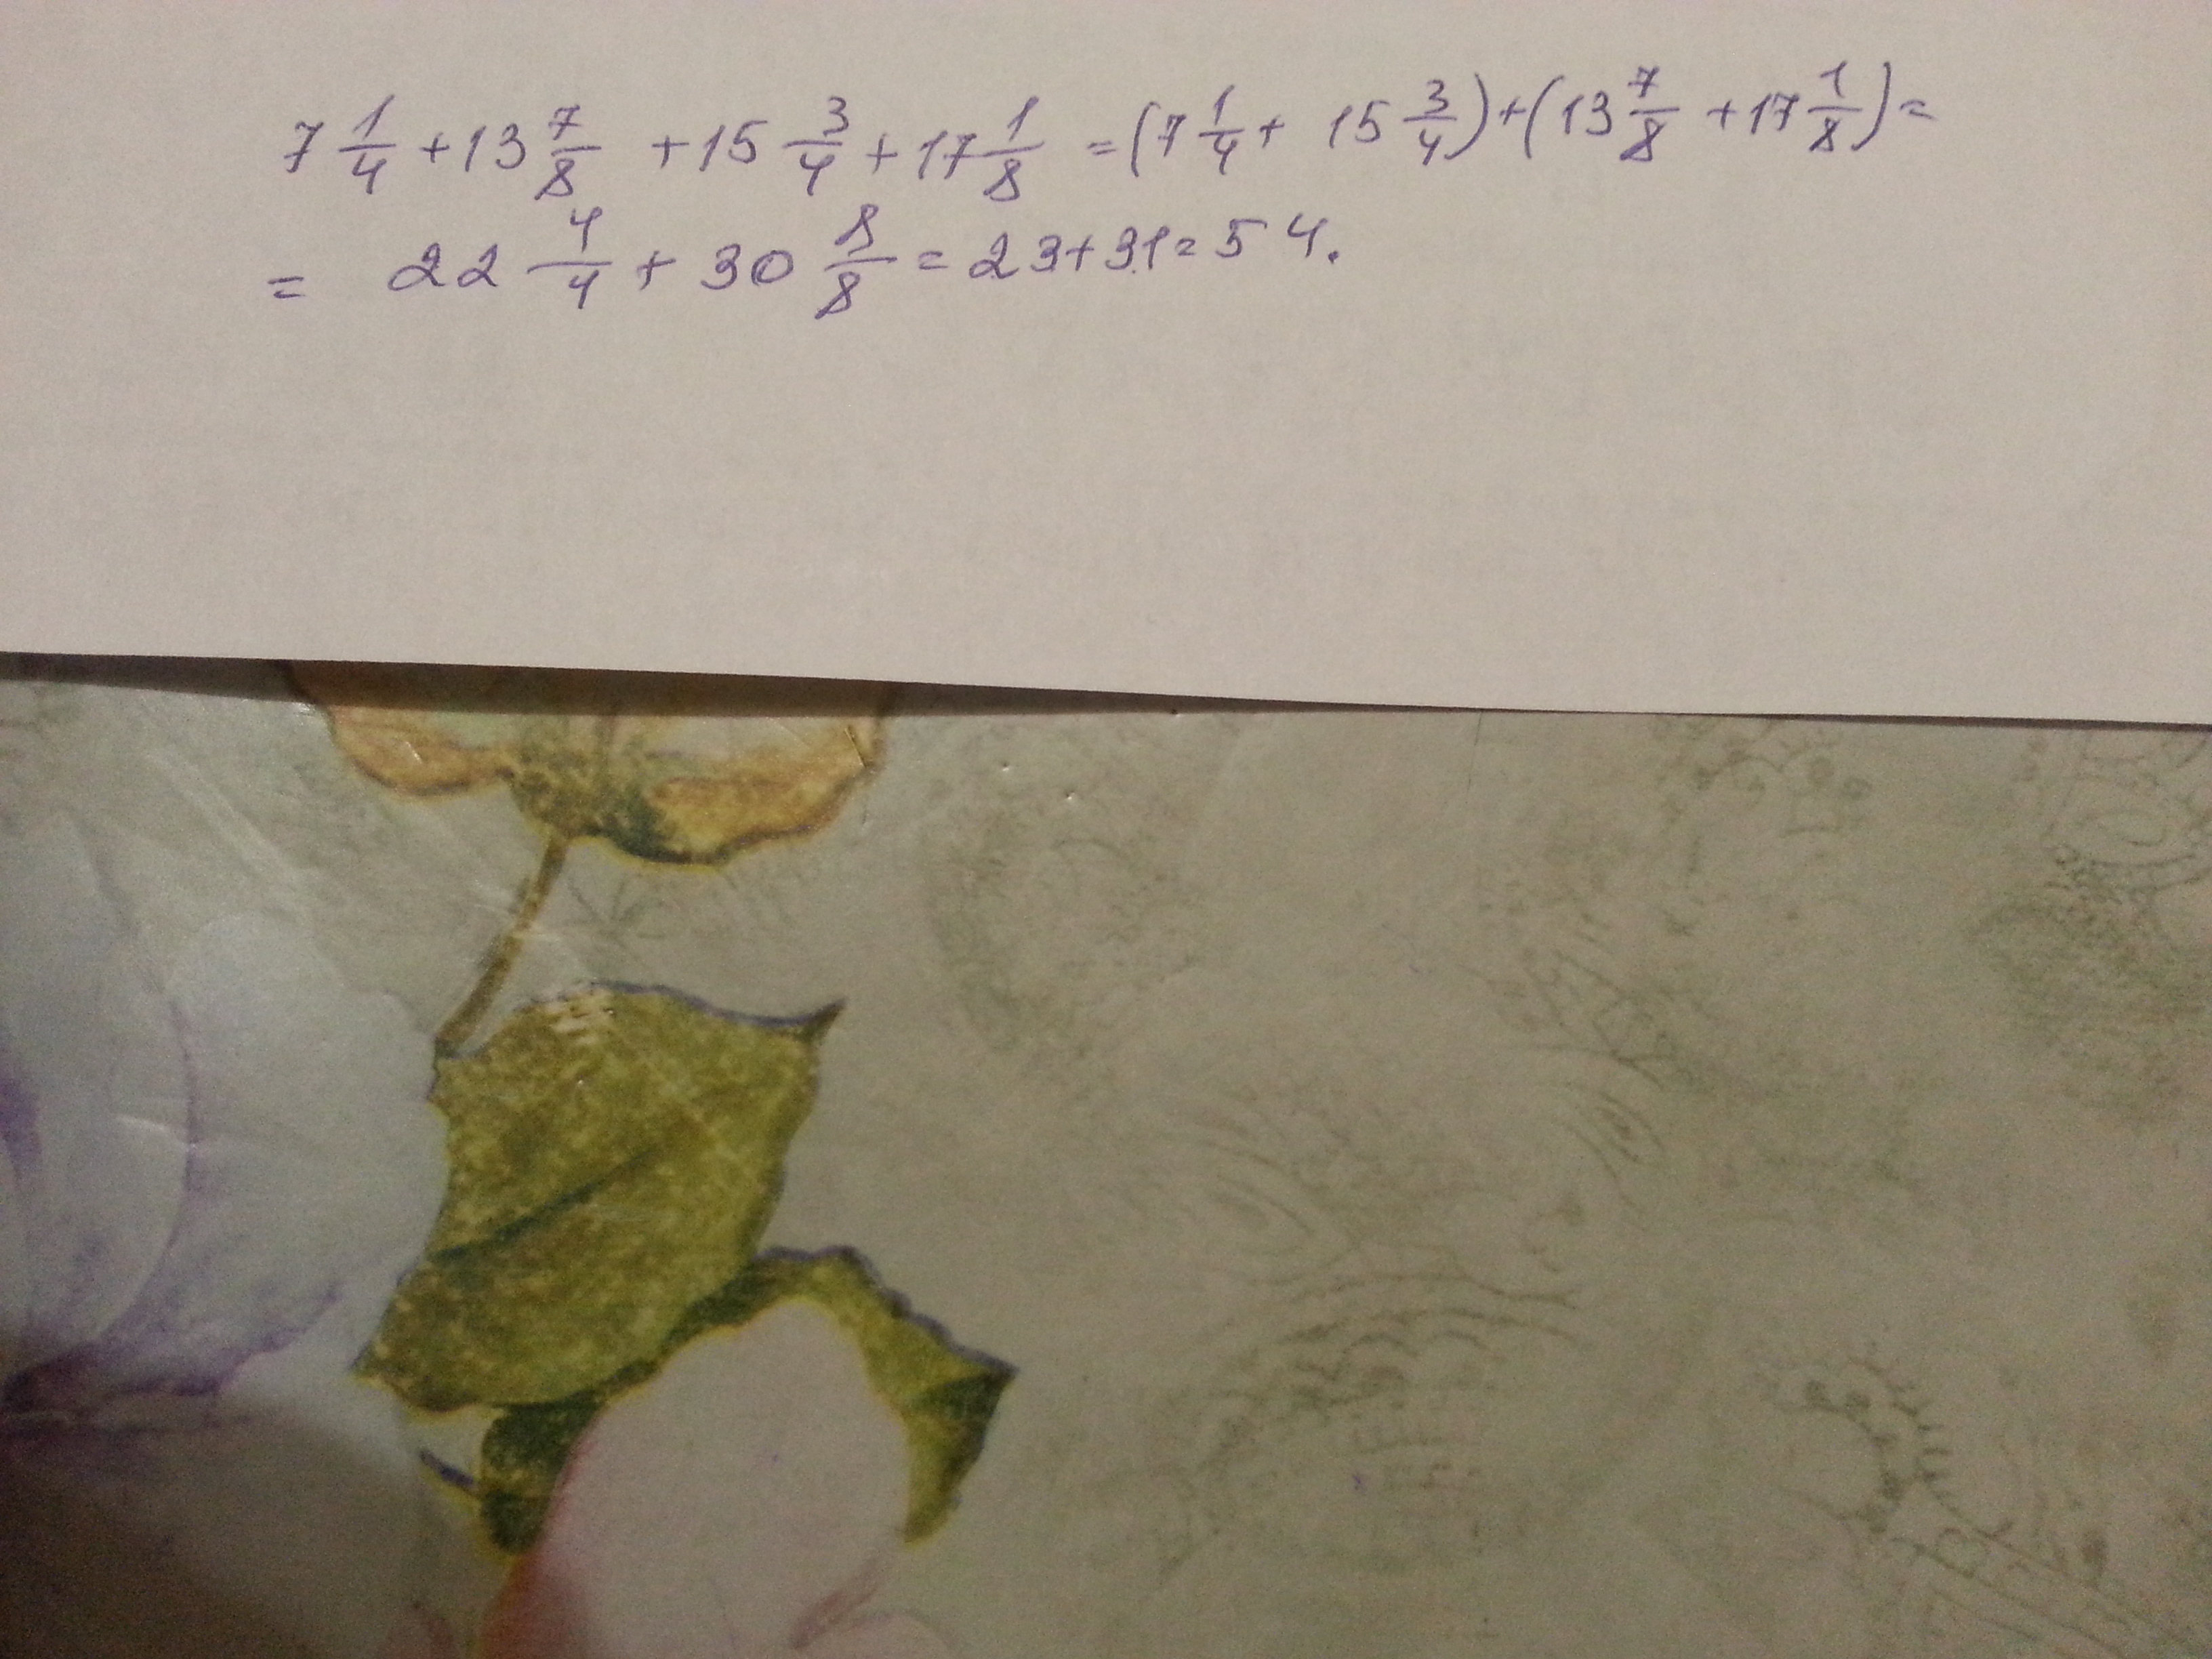 7 1/4 + 13 7/8 + 15 3/4 + 17 1/8 = (7 1/4 + 15 3/4) + (13 7/8 + 17 1/8) =
= 22 4/4 + 30 8/8 = 23 + 31 = 54.